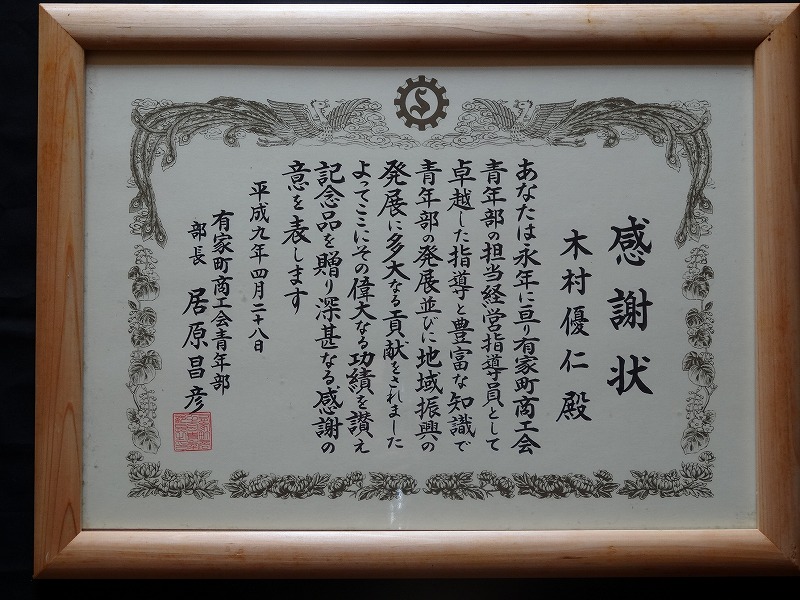 感謝状
木村優仁 殿
あなたは永年に亘り有家町商工会
青年部の担当経営指導員として
卓越した指導と豊富な知識で
青年部の発展並びに地域振興の
発展に多大なる貢献をされました
よってここにその偉大なる功績を讃え
記念品を贈り深甚なる感謝の
意を表します
平成九年四月二十八日
有家町商工会青年部
部長 居原昌彦